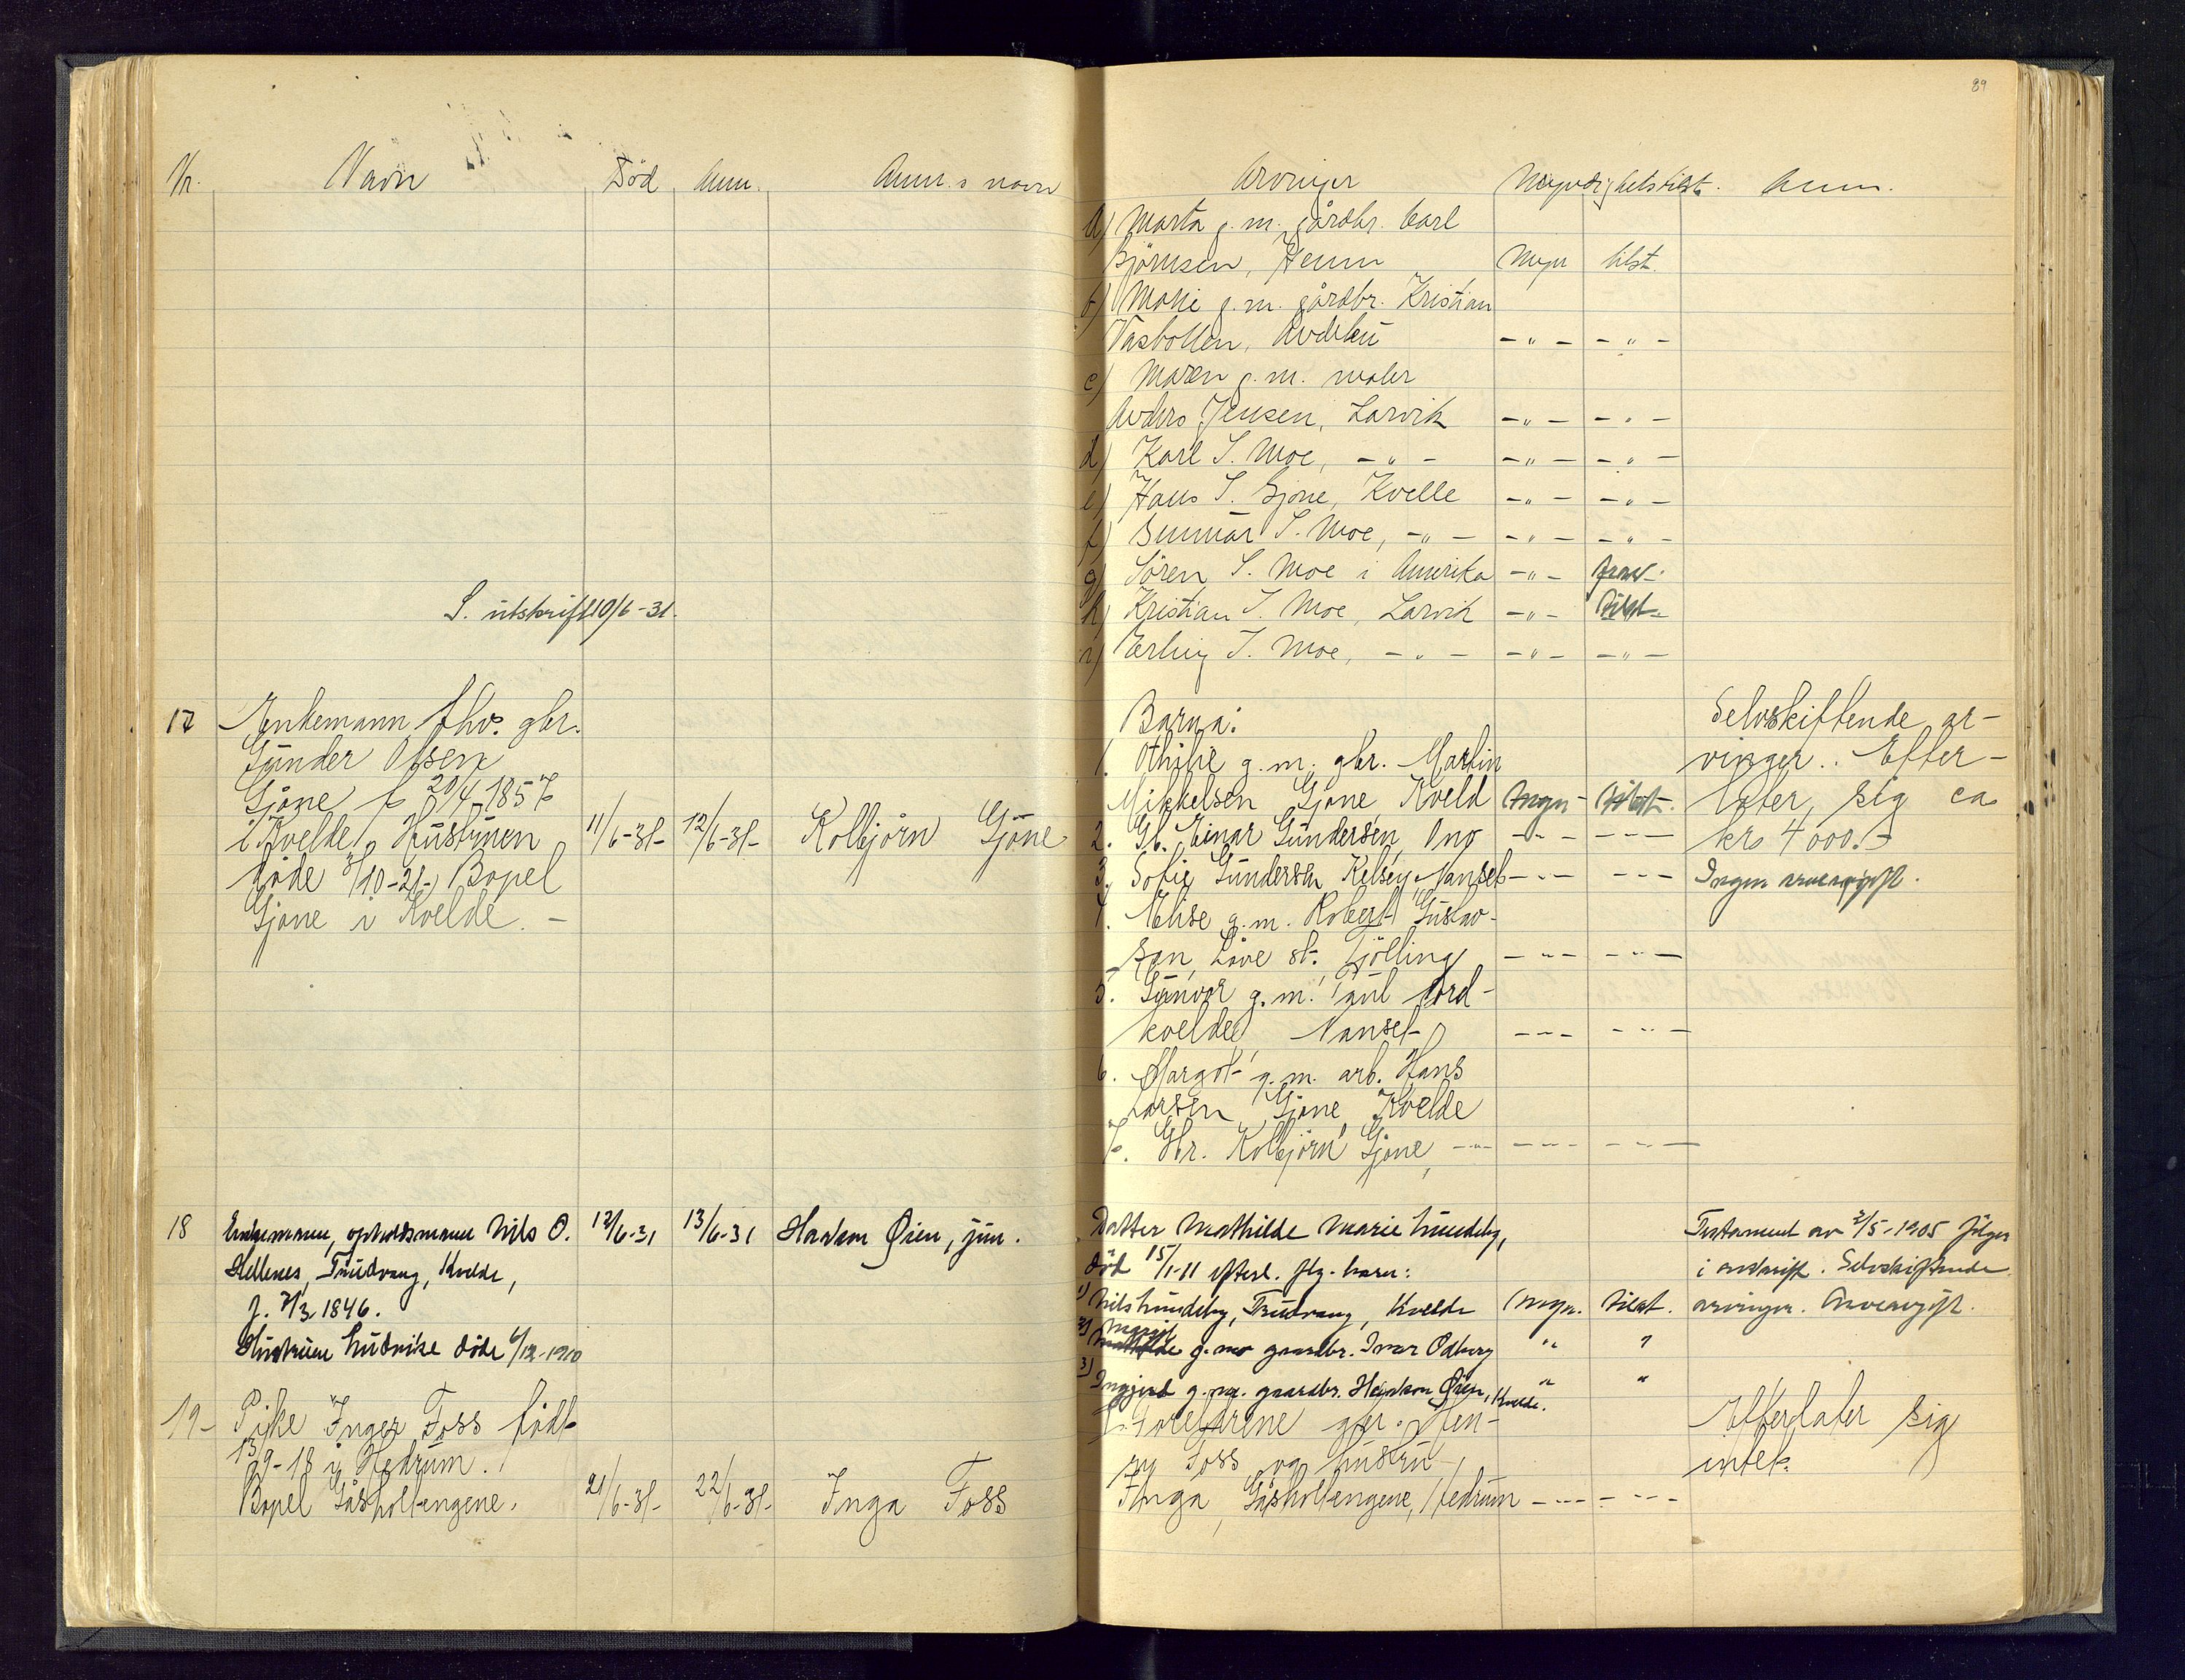 89
Nr. Navn Död Anm. Anm.s navn
S. utskrift 10/6-31.
17 Enkemann fhv. gbr.
Gunder Olsen
Gjöne f. 20/4-1857
i Kvelde. Hustruen
döde 8/10-21. Bopel
Gjöne i Kvelde. -
11/6-31- 12/6-31- Kolbjörn Gjöne
18 Enkemann, opholdsmann Nils O.
Hellenes, Trudvang, Kvelde,
f. 7/3 1846.
Hustruen Ludvike döde 6/12-1910
12/6-31 13/6-31 Haakon Øien, jun.
19- Pike Inger Foss födt
13/9-18 i Hedrum.
Bopel Gåsholtengene.
21/6-31- 22/6-31- Inga Foss
Arvinger Myndighetstilst. Anm.
a) Marta g. m. gårdbr. Carl
Björnsen, Heum Myn tilst.
b) Mathi g. m. gårdbr. Kristian
Vasbotten, -"- -"-
c) Maren g. m. maler
Anders Jensen, Larvik -"- -"-
d) Karl S. Moe, -"- -"- -"-
e) Hans S. Gjone, Kvelle -"- -"-
f) Gunnar S. Moe, -"- -"- -"-
g) Sören S. Moe i Amerika -"- frav.
h) Kristian S. Moe, Larvik -"- tilst.
i) Erling S. Moe, -"- -"- -"-
Barna:
1. Othilie g. m. gbr. Martin
Mikkelsen Gjöne, Kveld Myn- tilst-
2. Gb. Einar Gundersen, Ono -"- -"-
3. Sofie Gundersen Kelsey, Nanset -"- -"-
4. Elise g. m. Robert Gustav-
sen, Löve st. Tjölling -"- -"-
5. Gunvor g. m. Paul Nord-
kvelde, Nanset -"- -"-
6. Margot g. m. arb. Hans
Larsen, Gjone, Kvelde
7. Gbr. Kolbjörn Gjone, -"- -"- -"-
Selvskiftende ar-
vinger. Efter-
later sig ca
kr. 4000.-
Ingen arveavgift.
Datter Mathilde Marie Lundeby,
död 15/1-11 efterl. flg. barn:
1) Nils Lundeby, Trudvang, Kvelde Myn. tilst.
2) Margit
Mathilde g. m. gaardbr. Ivar Odberg " "
3) Ingjerd g. m. gaardbr. Haakon Øien, Kvelde. " "
Testament av 2/5-1905 følger
i avskrift. Selvskiftende
arvinger. Arveavgift.
Foreldrene gbr. Hen-
ry Foss og hustru
Inga, Gåsholtengene, Hedrum -"- -"-
Efterlater sig
intet.